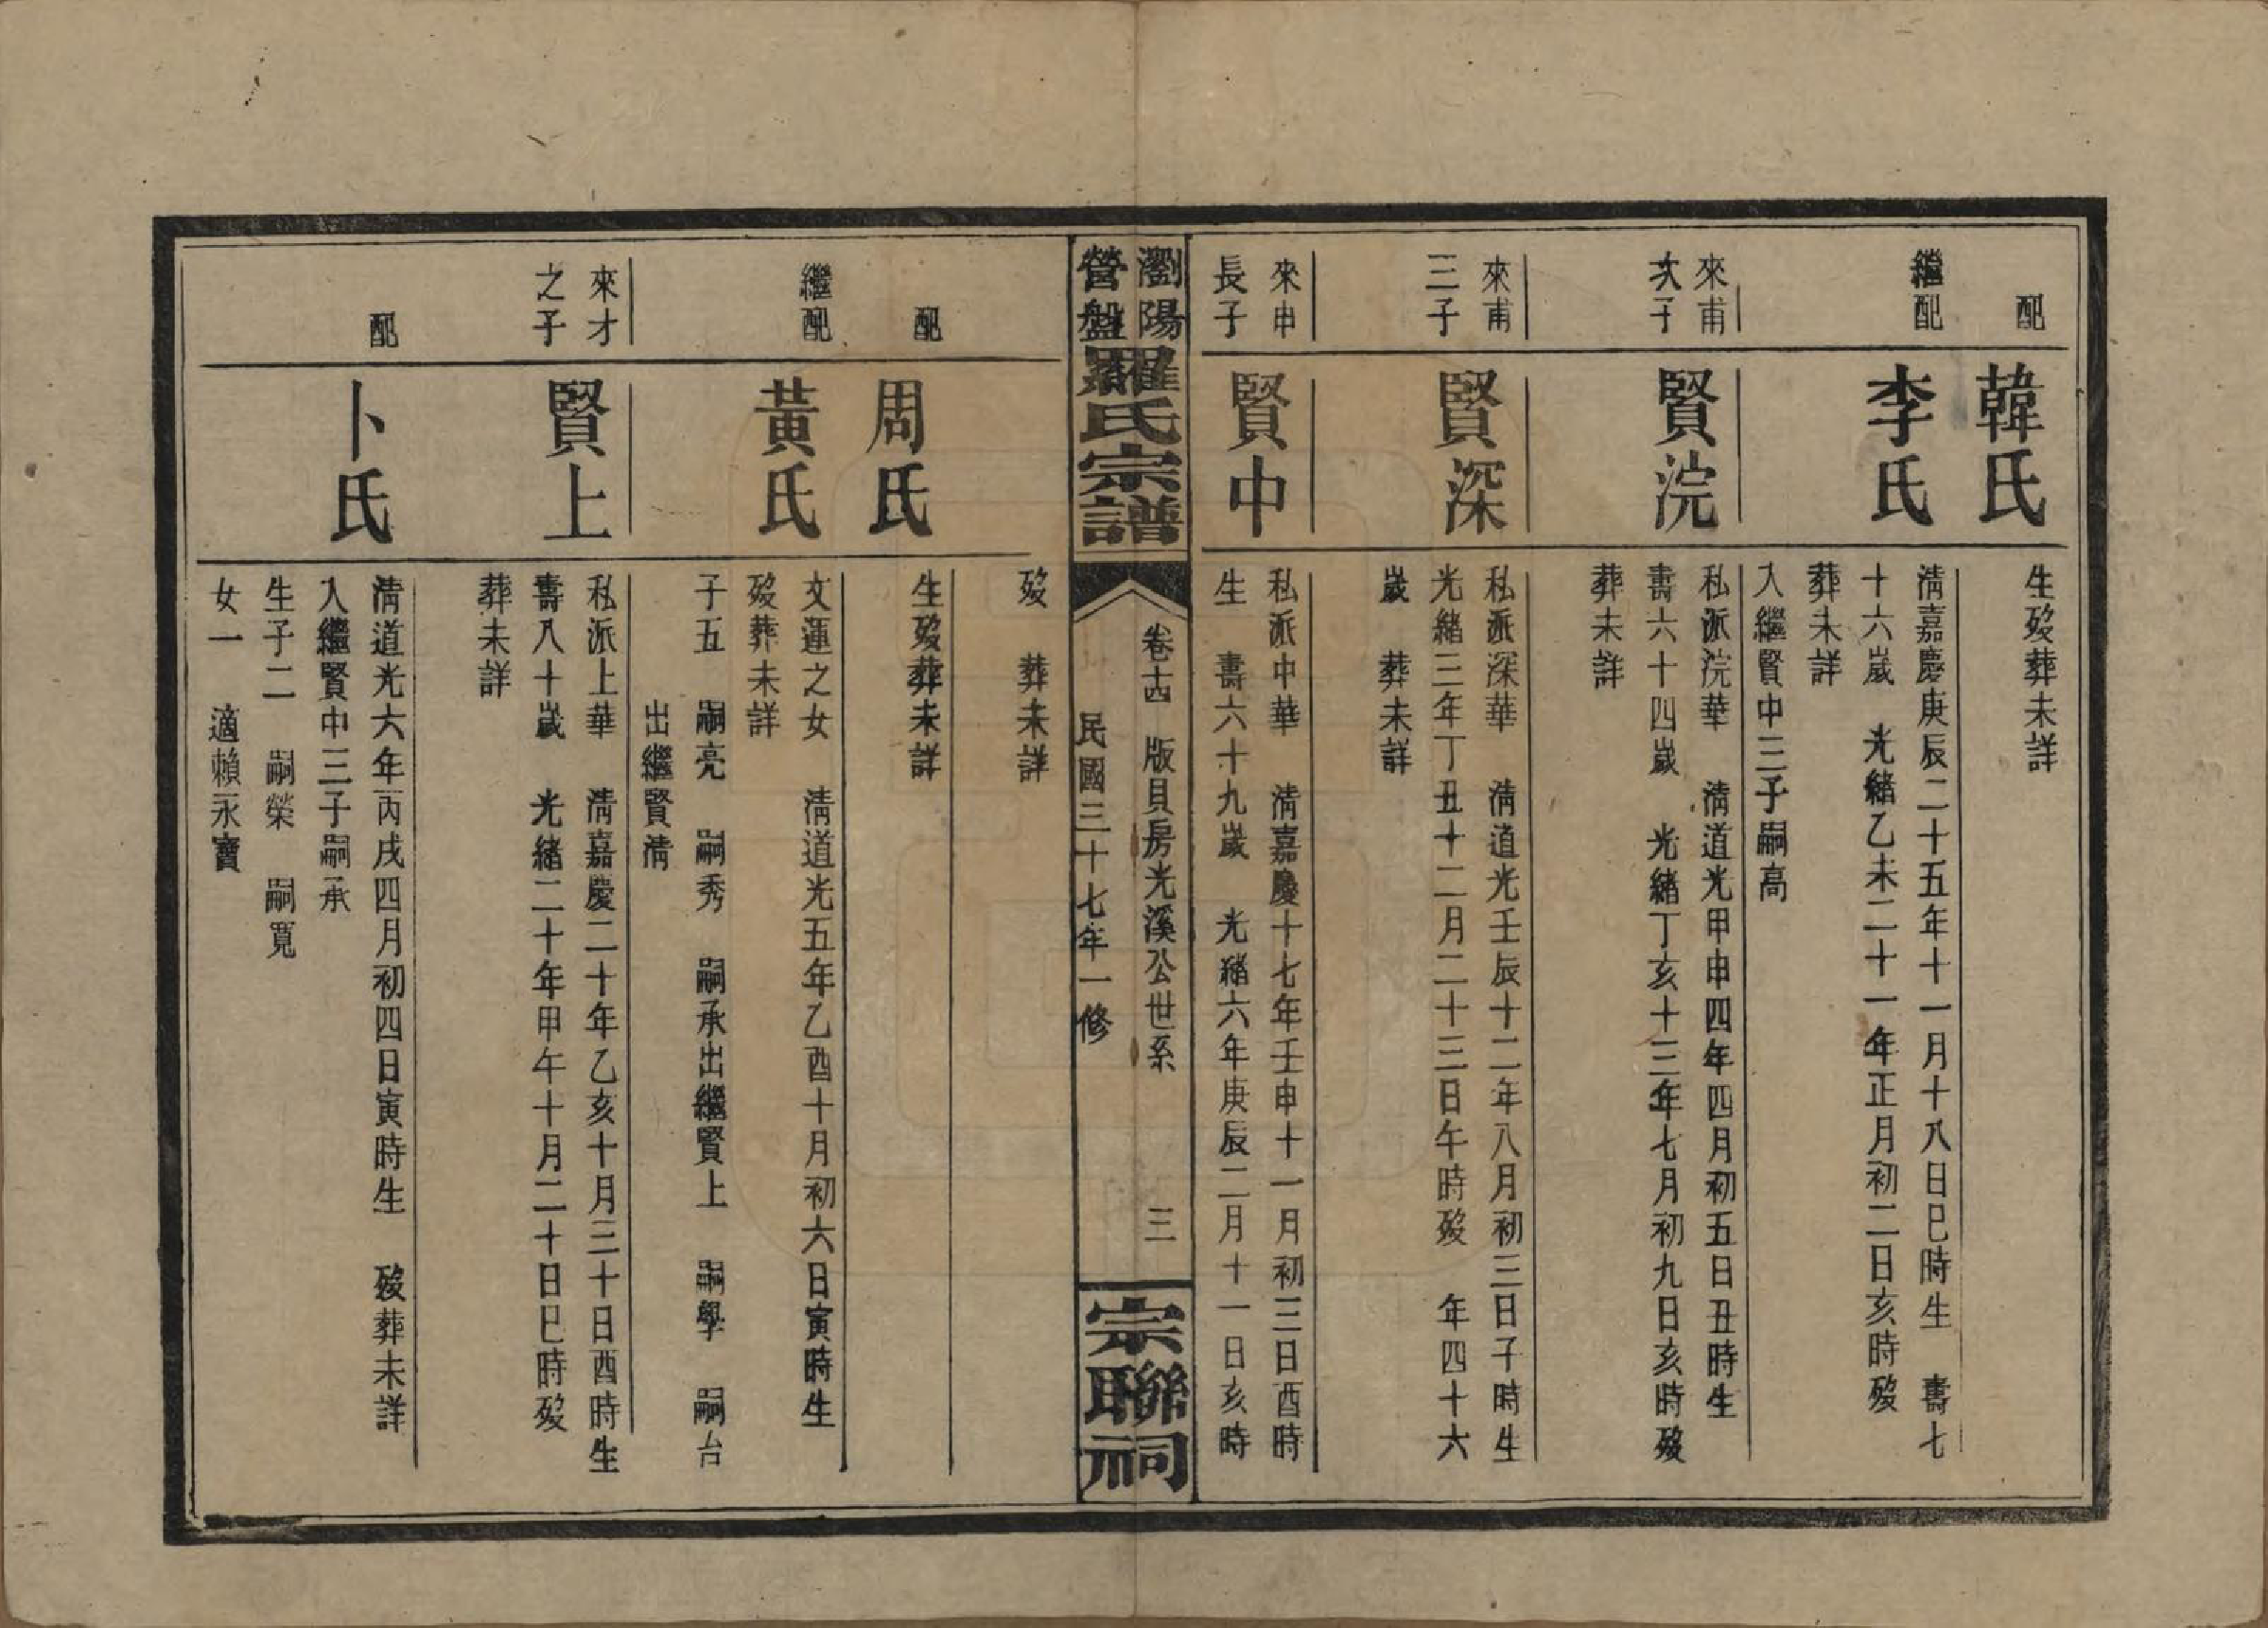 配
韓氏
生歿葬未詳
繼配
李氏
清嘉慶庚辰二十五年十一月十八日巳時生 壽七
十六嵗 光緒乙未二十一年正月初二日亥時歿
葬未詳
入繼賢中三子嗣高
來甫
次子
賢浣
私派浣華 清道光甲申四年四月初五日丑時生
壽六十四嵗 光緒丁亥十三年七月初九日亥時歿
葬未詳
來甫
三子
賢深
私派深華 清道光壬辰十二年八月初三日子時生
光緒三年丁丑十二月二十三日午時歿 年四十六
嵗 葬未詳
來申
長子
賢中
私派中華 清嘉慶十七年壬申十一月初三日酉時
生 壽六十九嵗 光緒六年庚辰二月十一日亥時
瀏陽
營盤
羅氏宗譜
卷十四 版貝房光溪公世系 三
民國三十七年一修
宗聯祠
歿 葬未詳
配
周氏
生歿葬未詳
繼配
黃氏
文蓮之女 清道光五年乙酉十月初六日寅時生
歿葬未詳
子五 嗣亮 嗣秀 嗣承出繼賢上 嗣學 嗣台
出繼賢清
來才
之子
賢上
私派上華 清嘉慶二十年乙亥十月三十日酉時生
壽八十嵗 光緒二十年甲午十月二十日巳時歿
葬未詳
配
卜氏
清道光六年丙戌四月初四日寅時生 歿葬未詳
入繼賢中三子嗣承
生子二 嗣榮 嗣寬
女一 適賴永寶